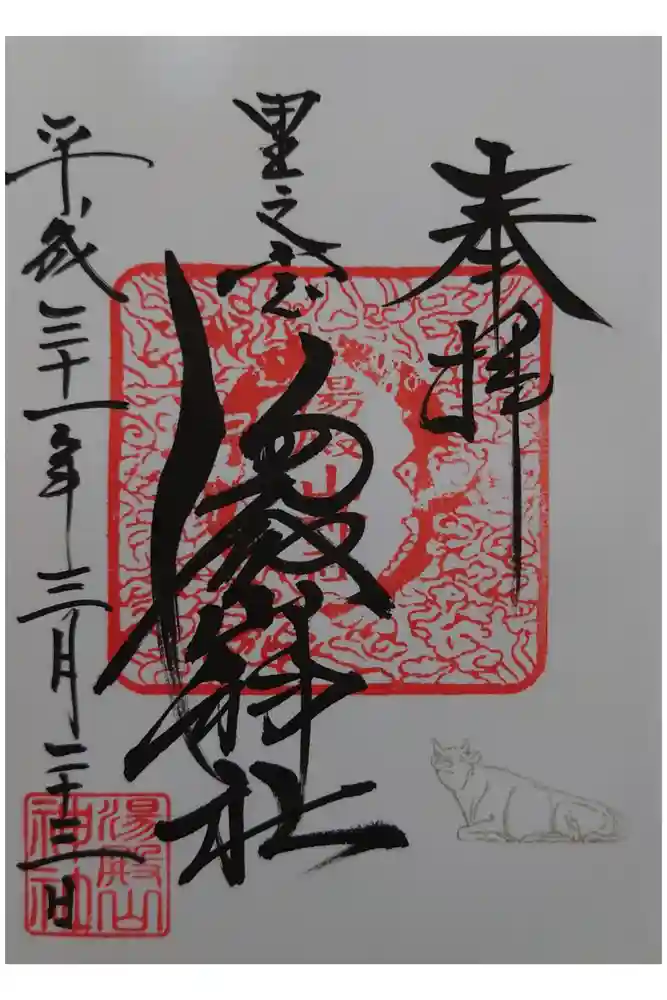 奉拝
里之宮
湯殿山神社
平成三十一年三月二十三日
湯殿山
神社